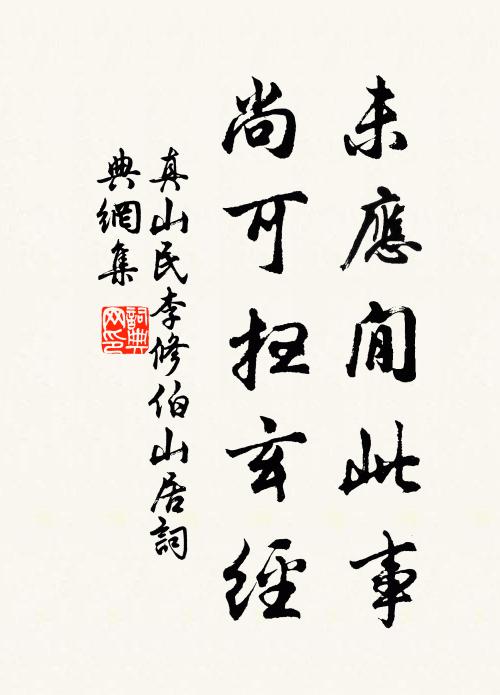 未應閒此事
尚可玄經
真山民李修伯山居詞
典網集
詞典
网印